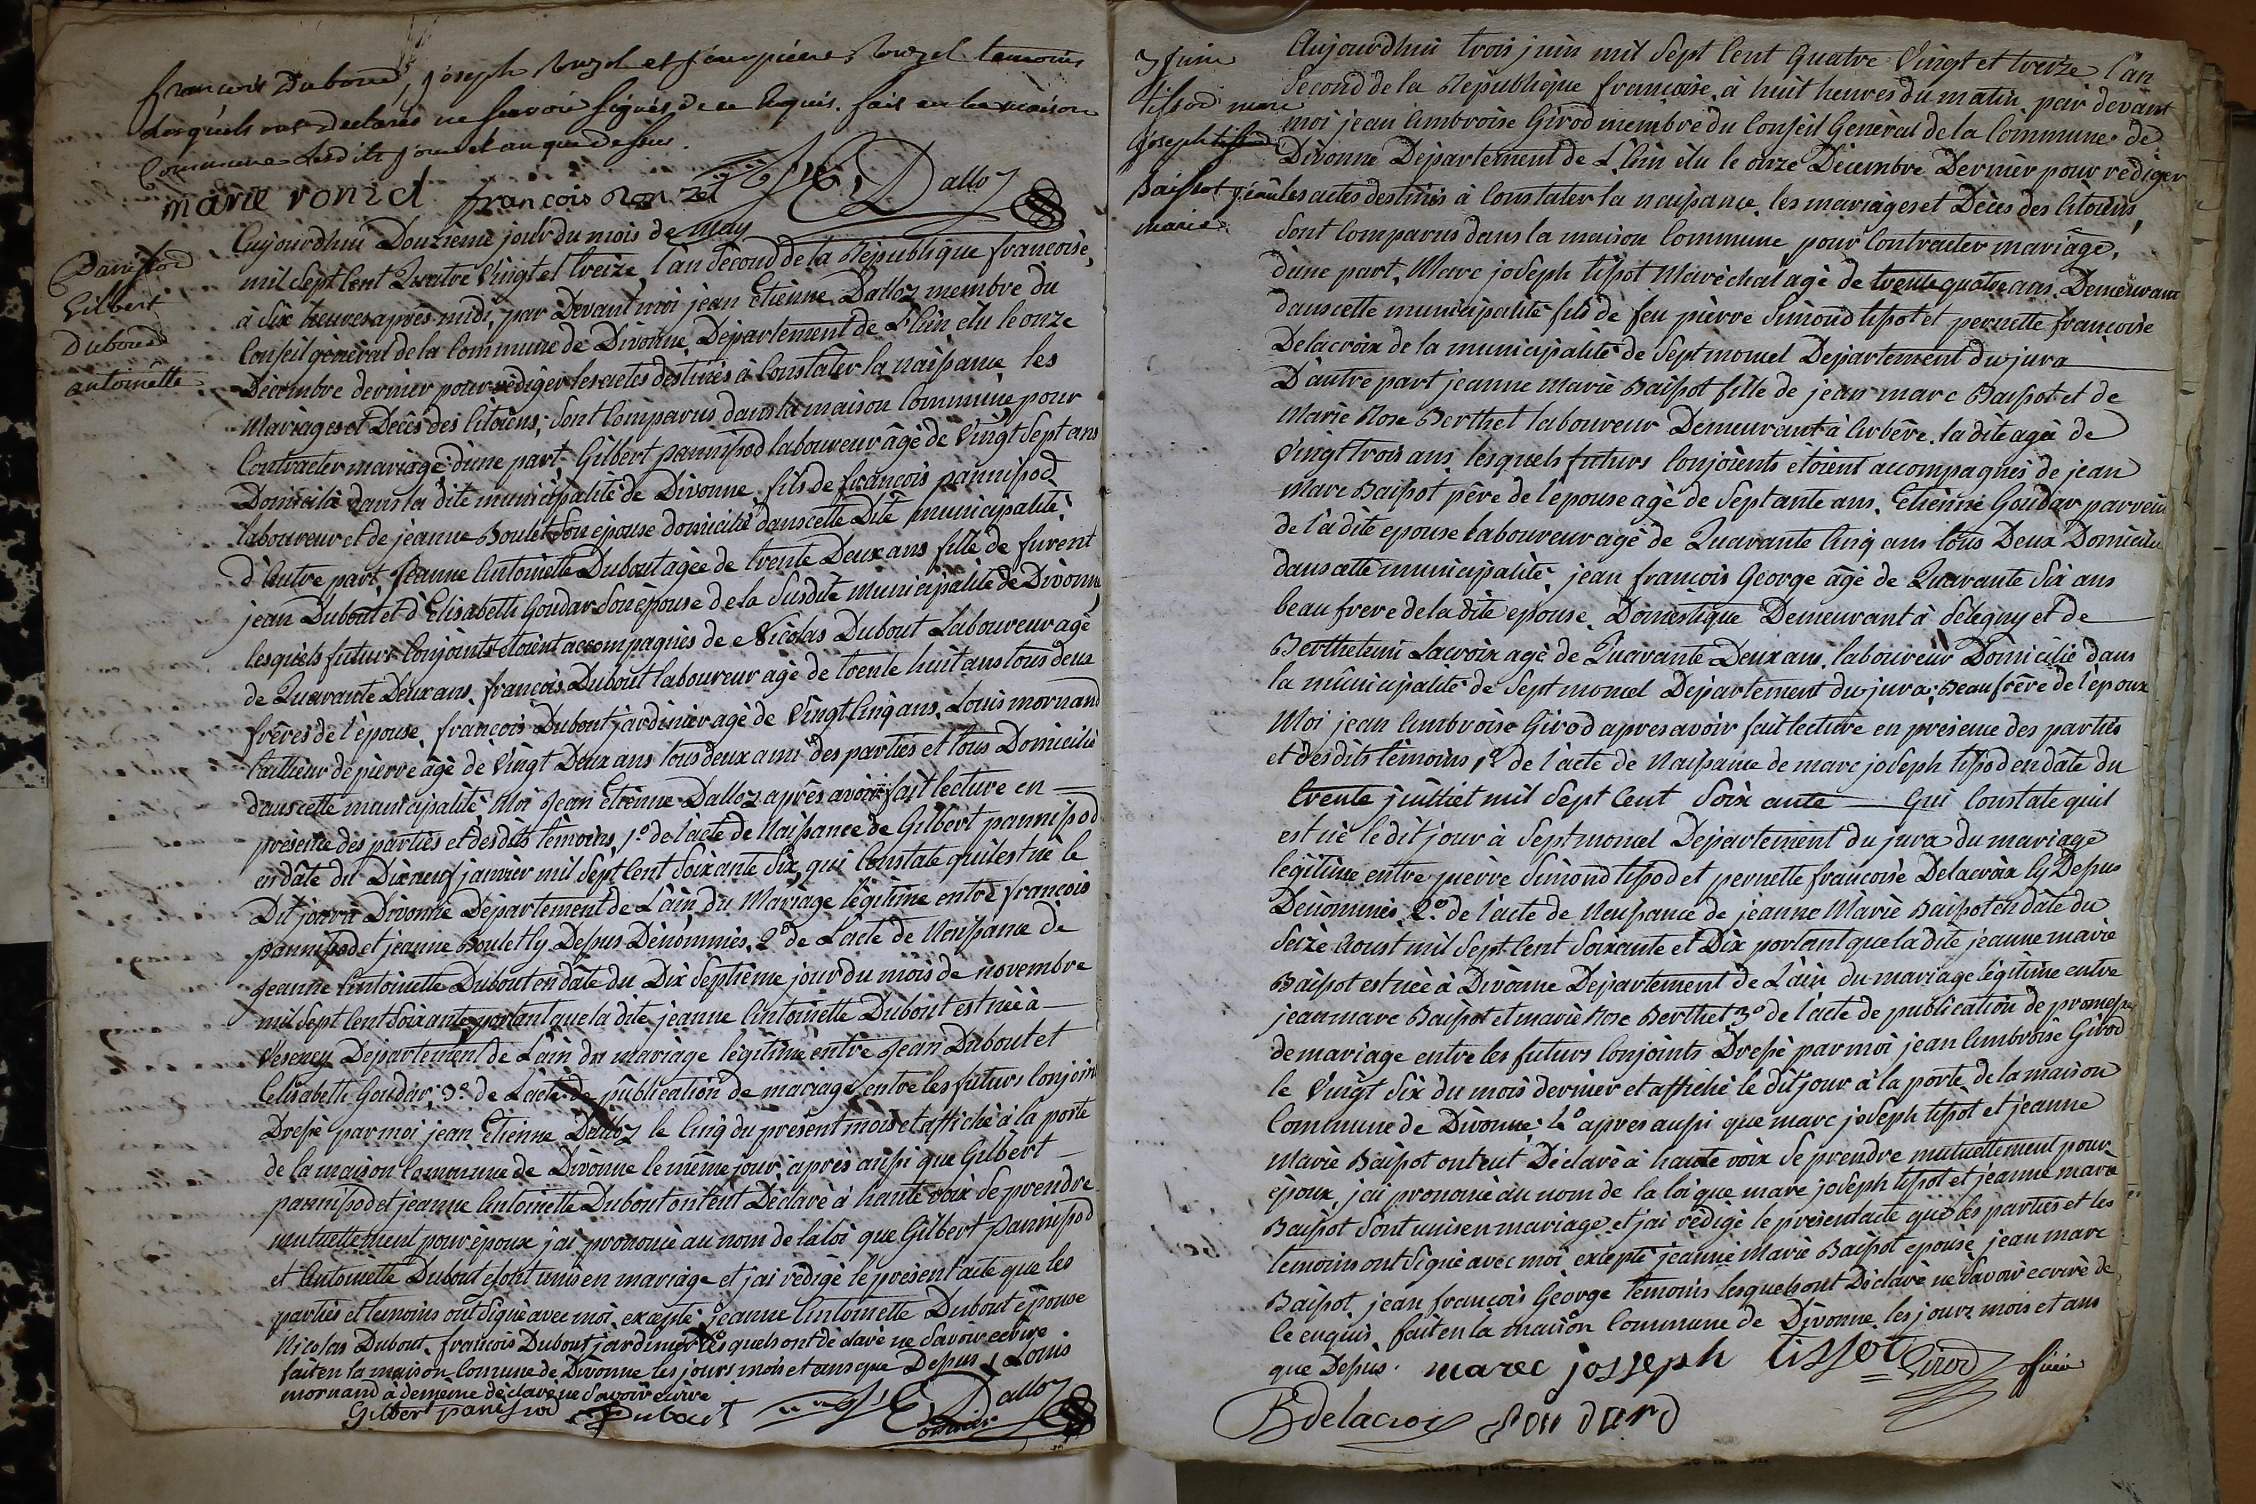 francois Duboud, joseph Ronzel et jeanpierre Ronzel temoins
lesquels ont declarés ne scavoir signés de ce Enquis. fait en la maison
Commune lesdits jour et an que dessus.
marie ronzel francois Ronzel J. E. Dalloz
Pannissod
Gilbert
Duboud
antoinette
Aujourdhui Douzieme jour du mois de may
mil sept Cent Quatre Vingt et treize, l'an second de la République francoise,
à six heures après midi, par Devant moi jean Etienne Dalloz membre du
Conseil général de la Commune de Divonne, Département de L'ain élu le onze
Décembre dernier pour rédiger les actes destinés à Constater la naissance, les
Mariages et Décès des Citoiens; sont Comparus dans la maison Commune pour
Contracter mariage, d'une part Gilbert pannissod laboureur âgé de Vingt sept ans
Domicilié dans la dite municipalité de Divonne, fils de francois pannissod
laboureur et de jeanne Boulet son épouse domicilié dans cette Dite municipalité,
d'Autre part, jeanne Antoinette Dubout agée de trente Deux ans fille de furent
jean Dubout et d'Elisabeth Goudar son épouse de la susdite Municipalité de Divonne,
lesquels futurs Conjoints étoient accompagnés de Nicolas Dubout Laboureur agé
de Quarante Deux ans, francois Dubout laboureur agé de trente huit ans tous deux
frères de l'épouse, francois Dubout jardinier agé de Vingt Cinq ans, Louis mornand
tailleur de pierre âgé de Vingt Deux ans tous deux ami des parties et tous Domicilié
dans cette municipalité Moi Jean Etienne Dalloz après avoir fait lecture en
présence des parties et des dits témoins, 1.º de l'acte de Naissance de Gilbert pannissod
en date du Dixneuf janvier mil sept Cent soixante six, qui Constate qu'il est né le
Dit jour à Divonne Département de L'ain, du Mariage légitime entre francois
pannissod et jeanne Boulet Cy Dessus Dénommés, 2º de L'acte de Naissance de
Jeanne Antoinette Dubout en date du Dix septième jour du mois de novembre
mil sept Cent soixante portant que la dite jeanne Antoinette Dubout est née à
Vesency Département de L'ain du mariage légitime entre Jean Dubout et
Elisabeth Goudar, 3º de L'acte de publication de mariage entre les futurs Conjoint
Dressé par moi jean Etienne Dalloz le Cinq du présent mois et affiché à la porte
de la maison Commune de Divonne le même jour, après aussi que Gilbert
pannissod et jeanne Antoinette Dubout ont eut Déclaré à haute voix se prendre
mutuellement pour époux j'ai prononcé au nom de la loi que Gilbert pannissod
et Antoinette Dubout sont unis en mariage et j'ai rédigé le présent acte que les
parties et temoins ont signé avec moi, excepté jeanne Antoinette Dubout épouse
Nicolas Dubout, francois Dubout jardinier lesquels ont déclaré ne savoir écrire
fait en la maison Comune de Divonne les jours mois et ans que Dessus, Louis
mornand a de meme déclaré ne savoir écrire
Gilbert panissod f Dubout J. E. Dalloz
3 juin
tissod marc
joseph tissod
Baissot jeanne
marie
Aujourdhui trois juin mil sept Cent Quatre Vingt et treize l'an
second de la République francaise, à huit heures du matin, par devant
moi jean Ambroise Girod membre du Conseil Général de la Commune de
Divonne Département de L'Ain élu le onze Décembre Dernier pour rédiger
les actes destinés à Constater la naissance, les mariages et Décès des Citoiens,
sont Comparus dans la maison Commune pour Contracter mariage,
d'une part, Marc joseph tissot Maréchal agé de trente quatre ans, Demeurant
dans cette municipalité fils de feu pierre simond tissot et pernette francoise
Delacroix de la municipalité de septmoncel Département du jura
D'autre part jeanne marie Baissot fille de jean marc Baissot et de
Marie Rose Berthet laboureur Demeurant à Arbère, la dite agée de
Vingt trois ans, lesquels futurs Conjoients etoient accompagnés de jean
Marc Baissot père de l'épouse agé de septante ans, Etienne Goudar parrein
de la dite epouse laboureur agé de Quarante Cinq ans tous Deux Domicilié
dans cette municipalité, jean francois George âgé de Quarante six ans
beau frere de la dite epouse, Domestique Demeurant à seligny et de
Berthelemi Lacroix agé de Quarante Deux ans, laboureur Domicilié dans
la municipalité de septmoncel Département du jura; Beau frère de l'époux
Moi jean Ambroise Girod apres avoir fait lecture en présence des parties
et des dits témoins, 1º de l'acte de Naissance de marc joseph tissod en date du
trente juilliet mil sept Cent soixante qui Constate quil
est né le dit jour à septmoncel Département du jura du mariage
légitime entre pierre simond tissod et pernette francoise Delacroix Cy Dessus
Dénommés, 2º de l'acte de Naissance de jeanne Marie Baissot en date du
seize Aoust mil sept Cent soixante et Dix portant que la dite jeanne marie
Baissot est née à Divonne Département de L'ain du mariage légitime entre
jean marc Baissot et marie Rose Berthet 3º de l'acte de publication de promesse
de mariage entre les futurs Conjoints Dressé par moi jean Ambroise Girod
le Vingt six du mois dernier et affiché le dit jour à la porte de la maison
Commune de Divonne, 4º apres aussi que marc joseph tissot et jeanne
Marie Baissot ont eut Déclaré à haute voix se prendre mutuellement pour
époux, j'ai prononcé au nom de la loi que marc joseph tissot et jeanne marie
Baissot sont unis en mariage et j'ai rédigé le présent acte que les parties et les
temoins ont signé avec moi, excepté jeanne Marie Baissot epouse, jean marc
Baissot, jean francois George temoins lesquels ont Déclaré ne savoir ecrire de
Ce enquis, fait en la maison Commune de Divonne, les jours mois et ans
que Dessus. marc josseph tissot Girod officier
B delacroix Goudard